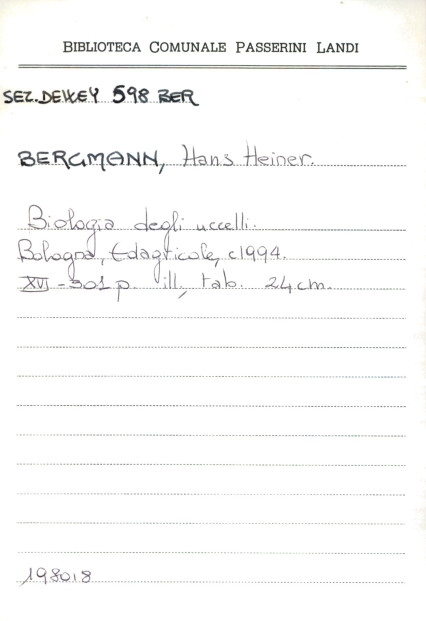 BIBLIOTECA COMUNALE PASSERINI LANDI
SEZ. DEWEY 598 BER
BERGMANN, Hans Heiner.
Biologia degli uccelli.
Bologna, Edagricole, c1994.
XVI-301 p. ill., tab. 24 cm.
198018